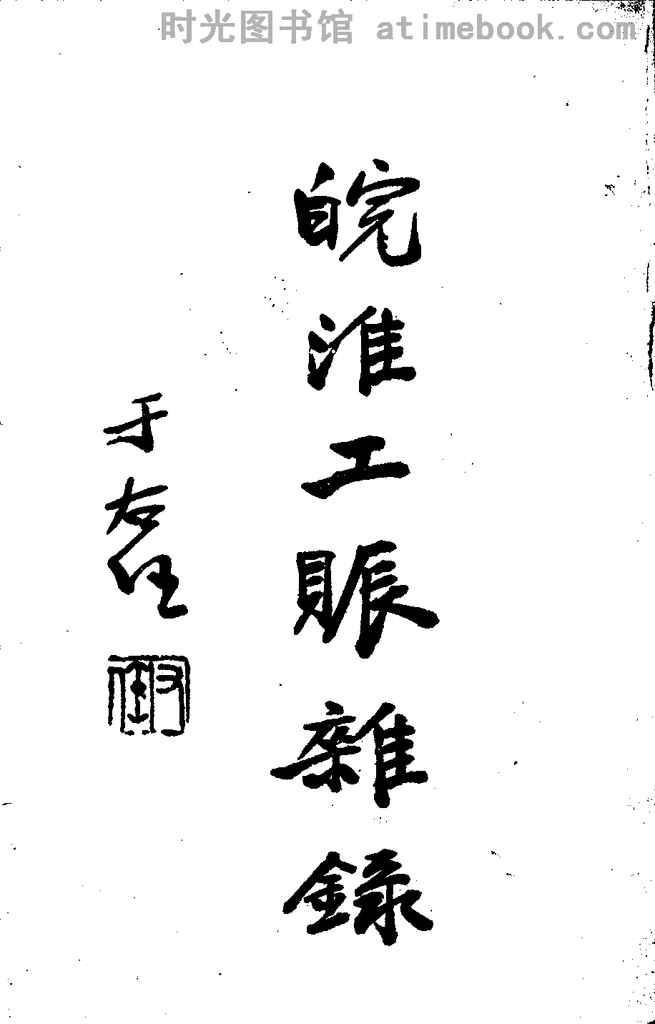 时光图书馆 atimebook.com
皖淮工賬雜錄
于右任